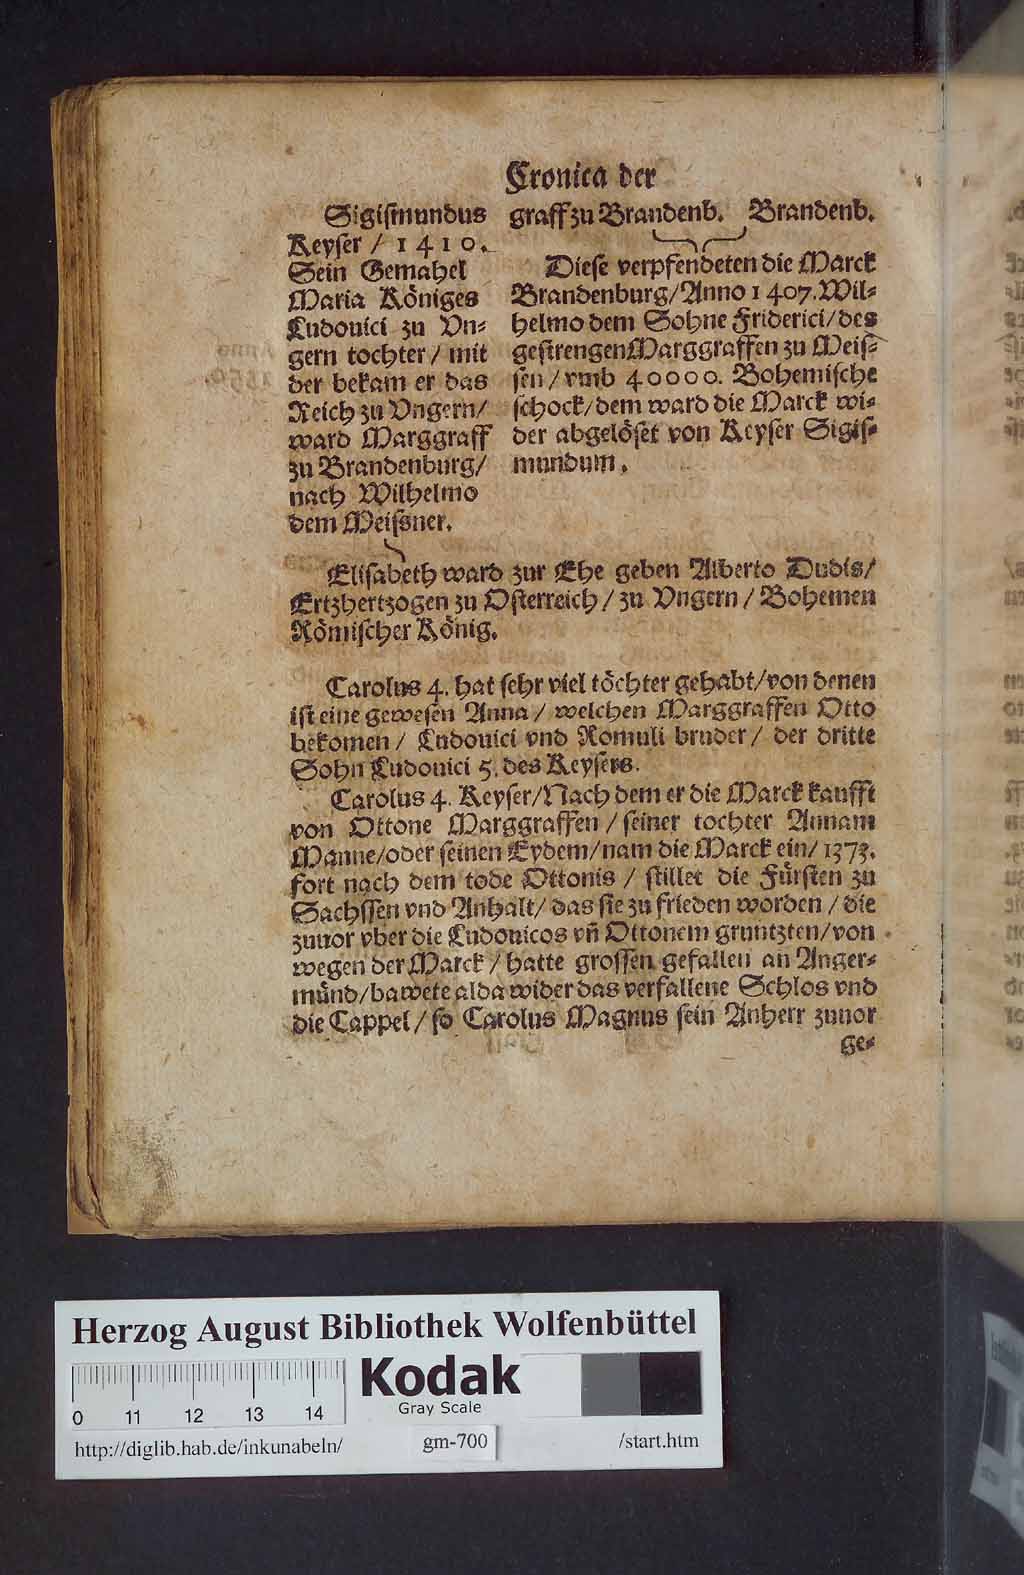 Cronica der
Sigiſmundus
Keyſer / 1410.
Sein Gemahel
Maria Königes
Ludouici zu Vn⸗
gern tochter / mit
der bekam er das
Reich zu Vngern/
ward Marggraff
zu Brandenburg/
nach Wilhelmo
dem Meiſsner.
graff zu Brandenb. Brandenb.
Dieſe verpfendeten die Marck
Brandenburg/Anno 1407. Wil⸗
helmo dem Sohne Friderici/des
geſtrengen Marggraffen zu Meiſ⸗
ſen/vmb 40000. Bohemiſche
ſchock/dem ward die Marck wi⸗
der abgelöſet von Keyſer Sigiſ⸗
mundum.
Eliſabeth ward zur Ehe geben Alberto Dudis/
Ertzhertzogen zu Oſterreich / zu Vngern / Bohemen
Römiſcher König.
Carolus 4. hat ſehr viel töchter gehabt/von denen
iſt eine geweſen Anna / welchen Marggraffen Otto
bekomen / Ludouici vnd Romuli bruder / der dritte
Sohn Ludouici 5. des Keyſers.
Carolus 4. Keyſer/Nach dem er die Marck kaufft
von Ottone Marggraffen / ſeiner tochter Annam
Manne/oder ſeinen Eydem/nam die Marck ein/ 1373.
fort nach dem tode Ottonis / ſtillet die Fürſten zu
Sachſſen vnd Anhalt/ das ſie zu frieden worden / die
zuuor vber die Ludouicos vn̄ Ottonem gruntzten/von
wegen der Marck / hatte groſſen gefallen an Anger⸗
münd/bawete alda wider das verfallene Schlos vnd
die Cappel / ſo Carolus Magnus ſein Anherr zuuor
ge⸗
Herzog August Bibliothek Wolfenbüttel
Kodak
Gray Scale
0 11 12 13 14
http://diglib.hab.de/inkunabeln/ gm-700 /start.htm